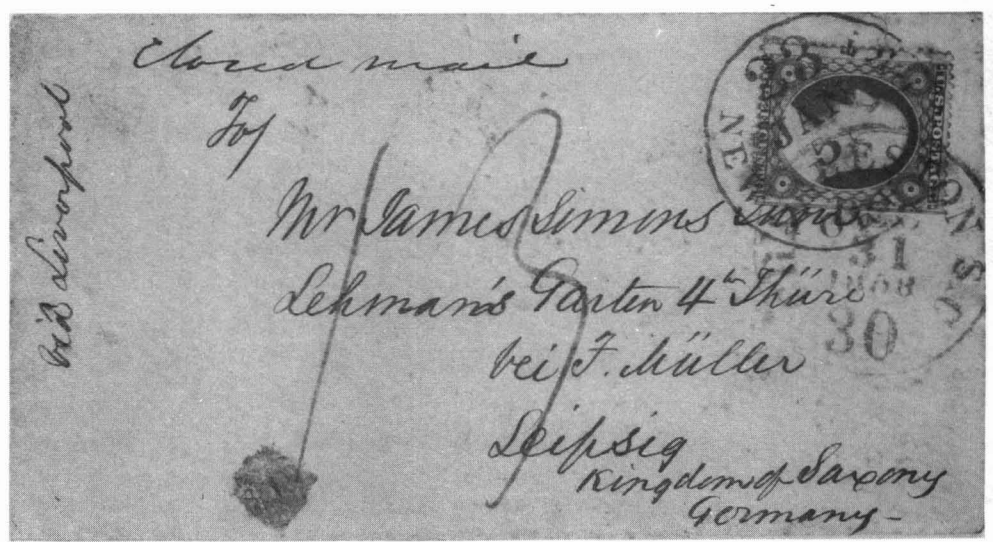 Closed mail
via Liverpool
To/
Mr James Simons Junr
Lehman's Garten 4te Thüre
bei F. Müller
Leipsig
Kingdom of Saxony
Germany -
13
NEW
JAN
31
1858
30